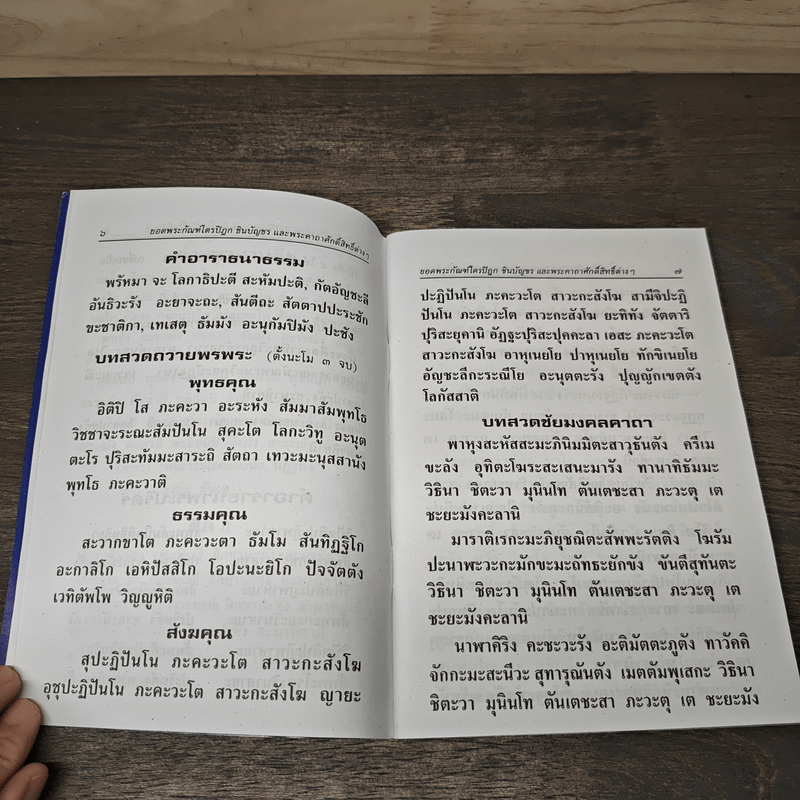 ๖ ยอดพระกัณฑ์ไตรปิฎก ชินบัญชร และพระคาถาศักดิ์สิทธิ์ต่างๆ
คำอาราธนาธรรม
พรัหมา จะ โลกาธิปะตี สะหัมปะติ, กัตอัญชะลี
อันธิวะรัง อะยาจะถะ, สันตีถะ สัตตาปประะชัก
ขะชาติกา, เทเสตุ ธัมมัง อะนุกัมปิมัง ปะชัง
บทสวดถวายพรพระ (ตั้งนะโม ๓ จบ)
พุทธคุณ
อิติปิ โส ภะคะวา อะระหัง สัมมาสัมพุทโธ
วิชชาจะระณะสัมปันโน สุคะโต โลกะวิทู อะนุต
ตะโร ปุริสะทัมมะสาระถิ สัตถา เทวะมะนุสสานัง
พุทโธ ภะคะวาติ
ธรรมคุณ
สะวากขาโต ภะคะวะตา ธัมโม สันทิฏฐิโก
อะกาลิโก เอหิปัสสิโก โอปะนะยิโก ปัจจัตตัง
เวทิตัพโพ วิญญูหิติ
สังฆคุณ
สุปะฏิปันโน ภะคะวะโต สาวะกะสังโฆ
อุชุปะฏิปันโน ภะคะวะโต สาวะกะสังโฆ ญายะ
ยอดพระกัณฑ์ไตรปิฎก ชินบัญชร และพระคาถาศักดิ์สิทธิ์ต่างๆ ๗
ปะฏิปันโน ภะคะวะโต สาวะกะสังโฆ สามีจิปะฏิ
ปันโน ภะคะวะโต สาวะกะสังโฆ ยะทิทัง จัตตาริ
ปุริสะยุคานิ อัฏฐะปุริสะปุคคะลา เอสะ ภะคะวะโต
สาวะกะสังโฆ อาหุเนยโย ปาหุเนยโย ทักขิเนยโย
อัญชะลีกะระณีโย อะนุตตะรัง ปุญญักเขตตัง
โลกัสสาติ
บทสวดชัยมงคลคาถา
พาหุงสะหัสสะมะภินิมมิตะสาวุธันตัง ครีเม
ขะลัง อุทิตะโฆระสะเสนะมารัง ทานาทิธัมมะ
วิธินา ชิตะวา มุนินโท ตันเตชะสา ภะวะตุ เต
ชะยะมังคะลานิ
มาราติเรกะมะภิยุชฌิตะสัพพะรัตติง โฆรัม
ปะนาฬะวะกะมักขะมะถัทธะยักขัง ขันตีสุทันตะ
วิธินา ชิตะวา มุนินโท ตันเตชะสา ภะวะตุ เต
ชะยะมังคะลานิ
นาฬาคิริง คะชะวะรัง อะติมัตตะภูตัง ทาวัคคิ
จักกะมะสะนีวะ สุทารุณันตัง เมตตัมพุเสกะ วิธินา
ชิตะวา มุนินโท ตันเตชะสา ภะวะตุ เต ชะยะมัง